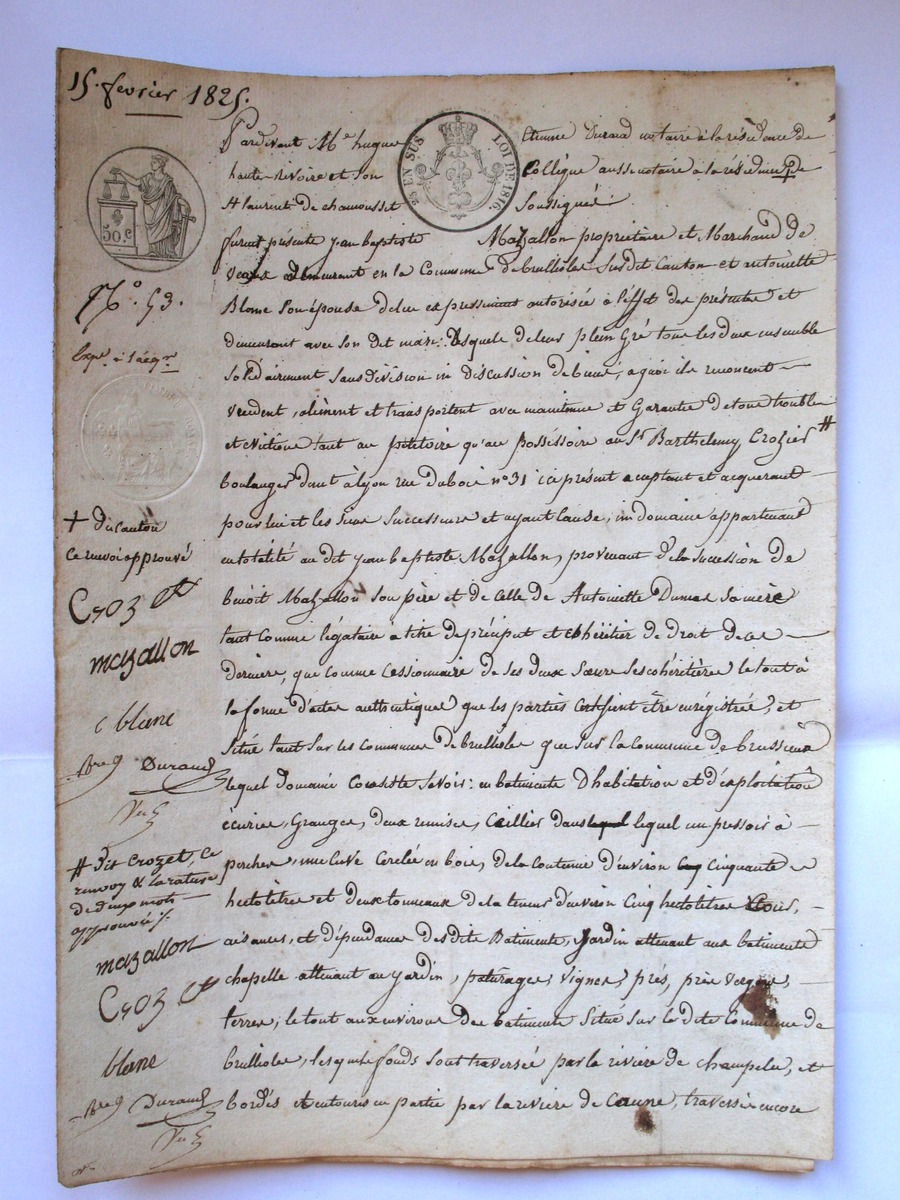 15. fevrier 1825.
Pardevant Me hugue Etienne Durand notaire à la résidence de
haute-rivoire et son Collègue aussi notaire à la résidence de +
St laurent de chamousset Soussignés
25 EN SUS LOI DE 1816.
50.c
furent présents jean baptiste Mazallon propriétaire et Marchand de
demeurant en la Commune de brulliolles Susdit Canton et antoinette
Blanc Son épouse de lui expressément autorisée à l'effet des présentes et
demeurant avec son dit mari: Lesquels de leur plein Gré tous les deux ensemble
Solidairement Sans division ni discussion de biens, a quoi ils renoncent —
vendent, cèdent et transportent avec maintenue et Garantie de tous troubles
et évictions tant au pétitoire qu'au possessoire au Sr Barthelemy Crozier #
boulanger dmt à Lyon rue Dubois no 31 ici présent acceptant et acquerant
pour lui et les siens Successeurs et ayant Cause, un domaine appartenant
en totalité au dit jean baptiste Mazallon, provenant de la succession de
benoit Mazallon son père et de celle de Antoinette Dumas Sa mère
tant Comme légataire à titre de préciput et cohéritier de droit de cette —
dernière, que comme Cessionnaire de ses deux Sœurs Ses cohéritières le tout à
la forme d'actes authentiques que les parties être enrégistrés, et
Situé tant Sur les Communes de brulliolles que Sur la Commune de brussieux
lequel domaine Consiste Savoir: en batiments d'habitation et d'exploitation
écuries, Granges, deux remises, Cellier dans lequel un pressoir à —
perches, une Cuve Cerclée en bois, de la Contenue d'environ Cinquante
hectolitres et deux tonneaux de la teneur d'environ Cinq hectolitres —
aisances, et dépendances des dits Batiments, Jardin attenant aux batiments
chapelle attenant au jardin, paturages, vignes, prés, près vergers, —
terres, le tout aux environs des batiments Situé sur la dite Commune de
brulliolles, lesquels fonds sont traversés par la rivière de champelu, et
bordés et entourés en partie par la rivière de Caune, traversés encore
No. 53.
Expn à l'acqr
+ du canton
ce renvoi approuvé
Croz
mazallon
blanc
Durand
# dit Crozet, ce
renvoy & la rature
de deux mots
approuvés
mazallon
Croz
blanc
Durand